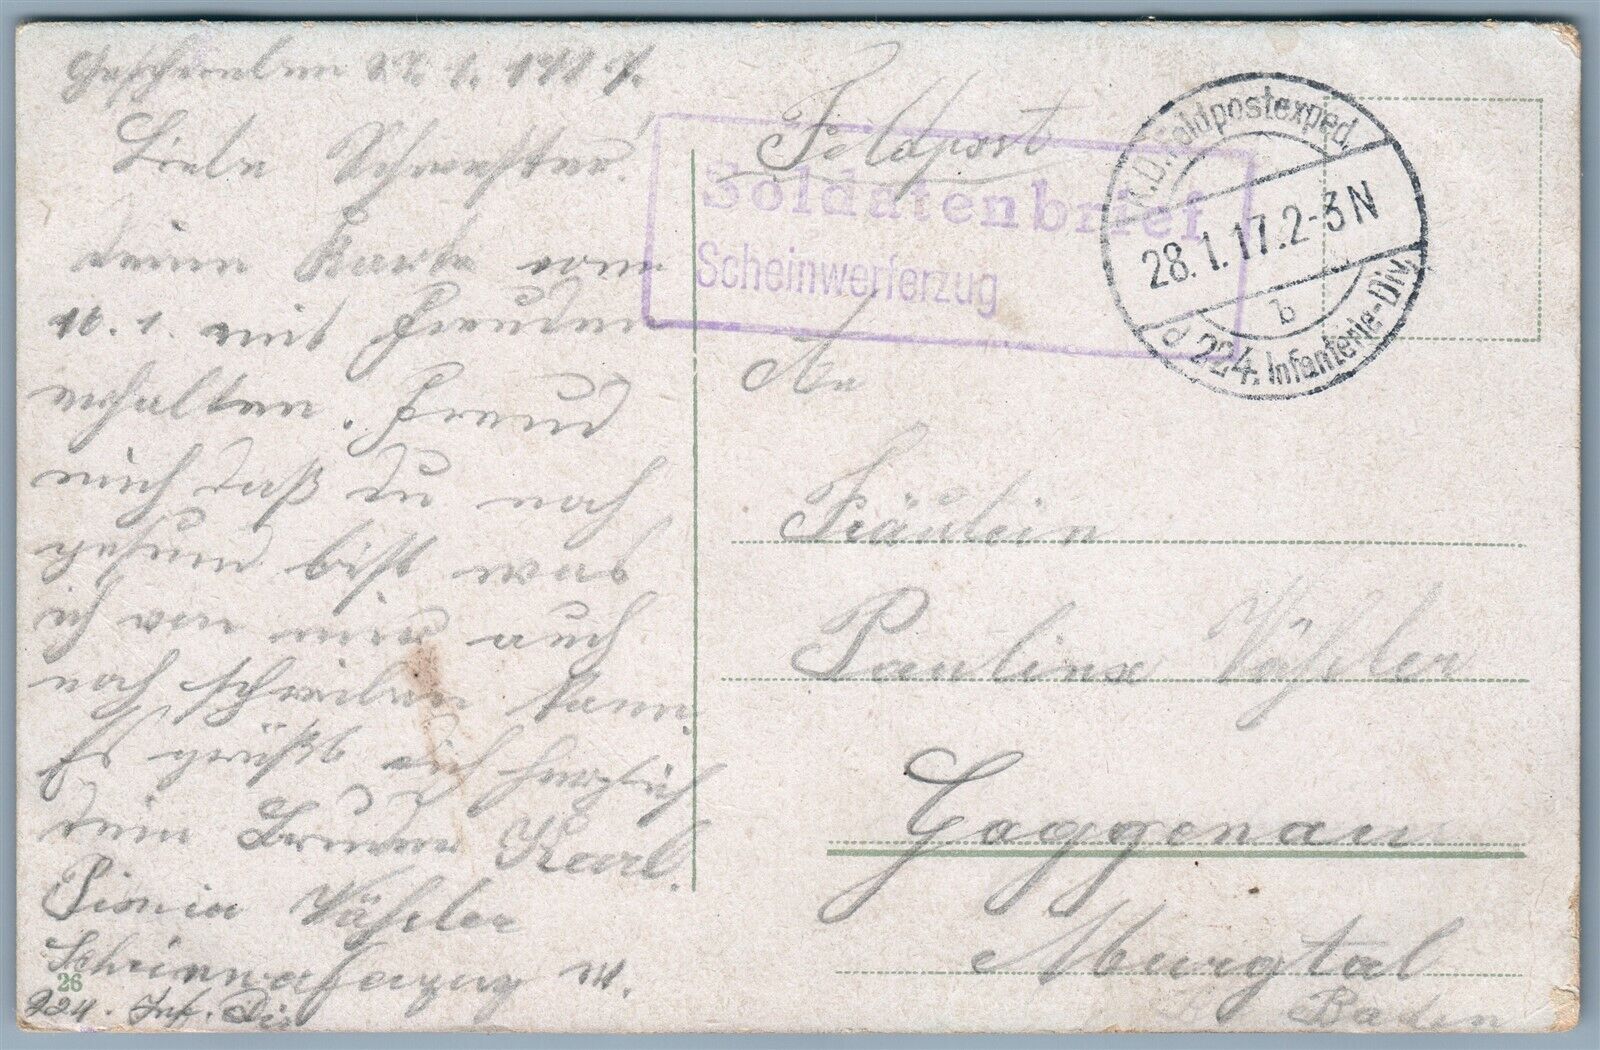 Geschrieben 27. 1. 1917.
Liebe Schwester!
deine Karte vom
16. 1. mit Freuden
erhalten. Freud
mich daß du noch
gesund bist was
ich von mir auch
noch schreiben kann.
Es grüßt dich herzlich
dein Bruder Karl.
Pionier Väßler
Scheinwerferzug
224. Inf. Div
26
Feldpost
Soldatenbrief
Scheinwerferzug
K.D. Feldpostexped.
28.1.17.2-3N
b
d 224. Infanterie-Div.
An
Fräulein
Paulina Väßler
Gaggenau
Murgtal
Baden